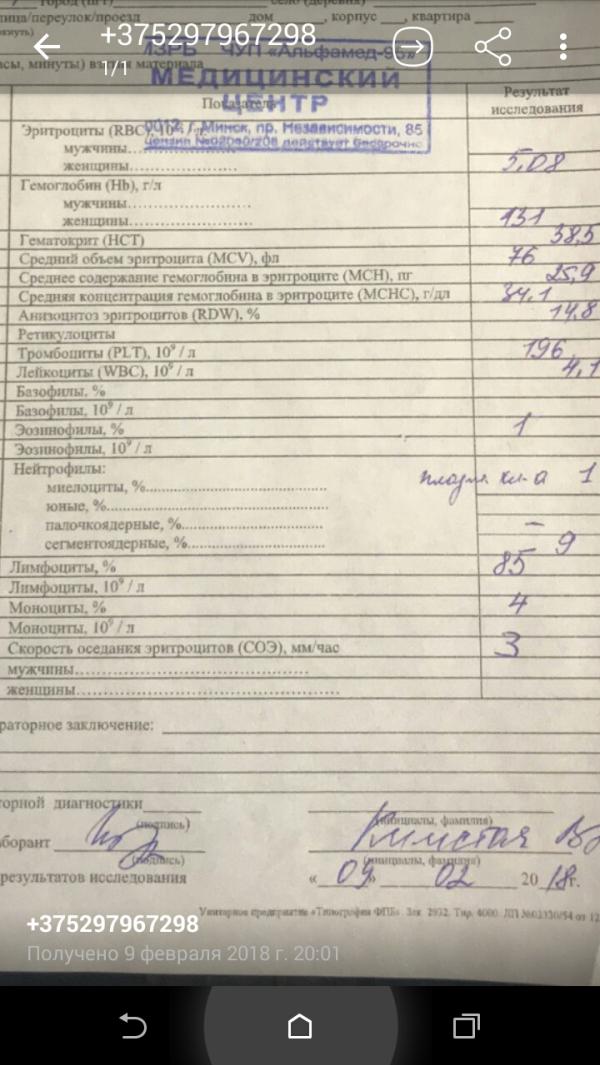 город (пгт) село (деревня)
лица/переулок/проезд дом , корпус , квартира
+375297967298
1/1
ИЗРБ ЧУП «Альфамед-95»
асы, минуты) взятия материала
МЕДИЦИНСКИЙ
ЦЕНТР
Показатель
Результат
исследования
0012, г. Минск, пр. Независимости, 85
Эритроциты (RBC), 10
мужчины
женщины 5,08
Гемоглобин (Hb), г/л
мужчины
женщины 131
Гематокрит (HCT) 38,5
Средний объем эритроцита (MCV), фл 76
Среднее содержание гемоглобина в эритроците (MCH), пг 25,9
Средняя концентрация гемоглобина в эритроците (MCHC), г/дл 34,1
Анизоцитоз эритроцитов (RDW), % 14,8
Ретикулоциты
Тромбоциты (PLT), 10⁹ / л 196
Лейкоциты (WBC), 10⁹ / л 4,1
Базофилы, %
Базофилы, 10⁹ / л
Эозинофилы, % 1
Эозинофилы, 10⁹ / л
Нейтрофилы:
миелоциты, % плазм. кл-а 1
юные, %
палочкоядерные, % –
сегментоядерные, % 9
Лимфоциты, % 85
Лимфоциты, 10⁹ / л
Моноциты, % 4
Моноциты, 10⁹ / л
Скорость оседания эритроцитов (СОЭ), мм/час 3
мужчины
женщины
раторное заключение:
торной диагностики
(подпись) (инициалы, фамилия)
аборант
(подпись) (инициалы, фамилия)
результатов исследования « 09 » 02 2018г.
Унитарное предприятие «Типография ФПБ». Зак. 2932. Тир. 4000. ЛП №02330/54 от 12
+375297967298
Получено 9 февраля 2018 г. 20:01